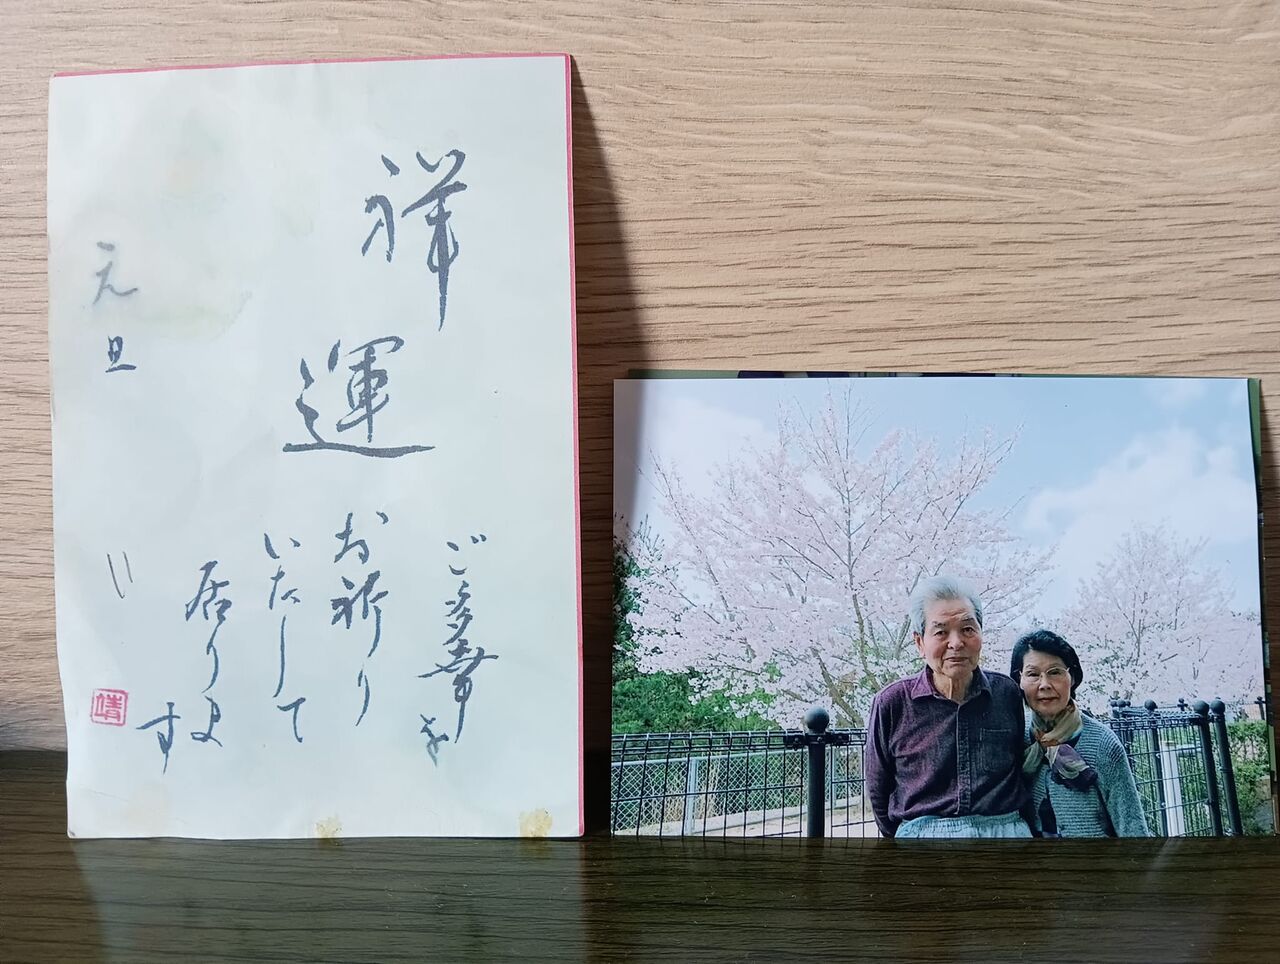 祥運
ご多幸を
お祈り
いたして
居りま
す
元旦
靖